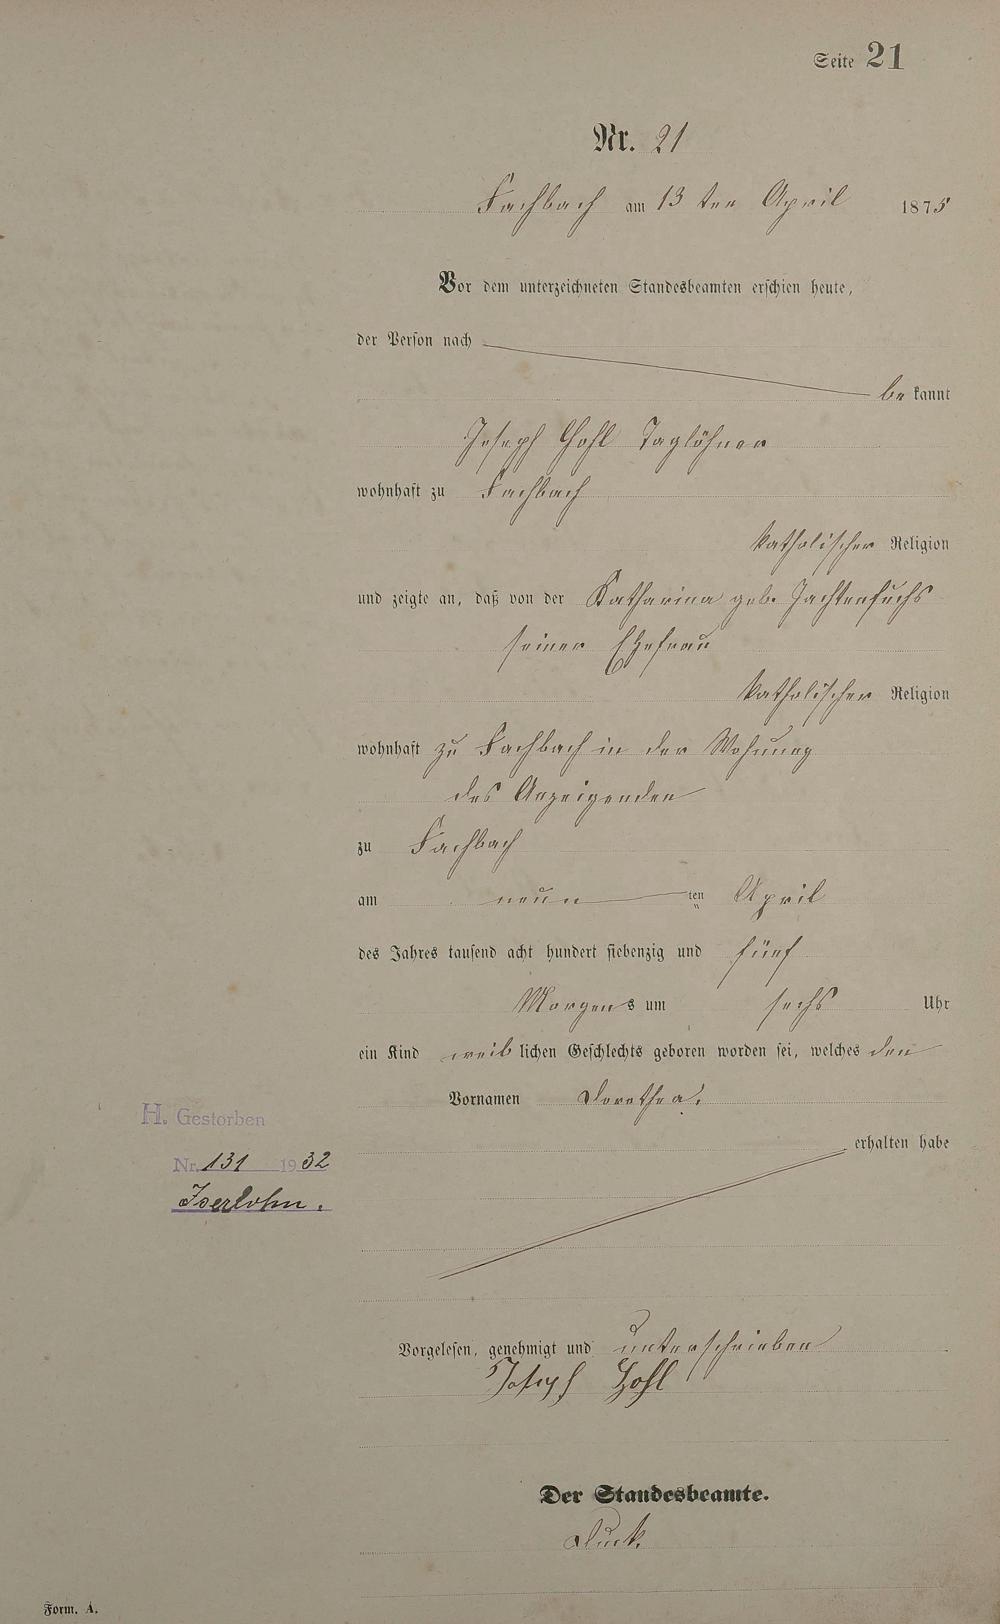 Seite 21
Nr. 21
Fachbach am 13 ten April 1875
Vor dem unterzeichneten Standesbeamten erschien heute,
der Person nach
be kannt
Joseph Hohl Taglöhner
wohnhaft zu Fachbach
katholischer Religion
und zeigte an, daß von der Katharina geb. Jachtenfuchs
seiner Ehefrau
katholischer Religion
wohnhaft zu Fachbach in der Wohnung
des Anzeigenden
zu Fachbach
am neun ten April
des Jahres tausend acht hundert siebenzig und fünf
Morgens um sechs Uhr
ein Kind weiblichen Geschlechts geboren worden sei, welches den
Vornamen Dorothea.
erhalten habe
H. Gestorben
Nr. 131 1932
Iserlohn.
Vorgelesen, genehmigt und unterschrieben
Joseph Hohl
Der Standesbeamte.
Form. A.